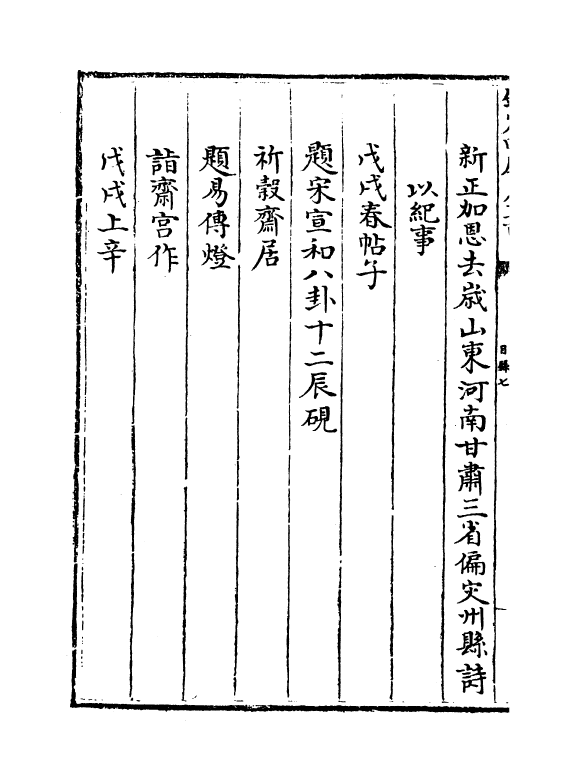 新正加恩去嵗山東河南甘肅三省偏灾州縣詩
以紀事
戊戌春帖子
題宋宣和八卦十二辰硯
祈穀齋居
題易傳燈
詣齋宫作
戊戌上辛
目録七